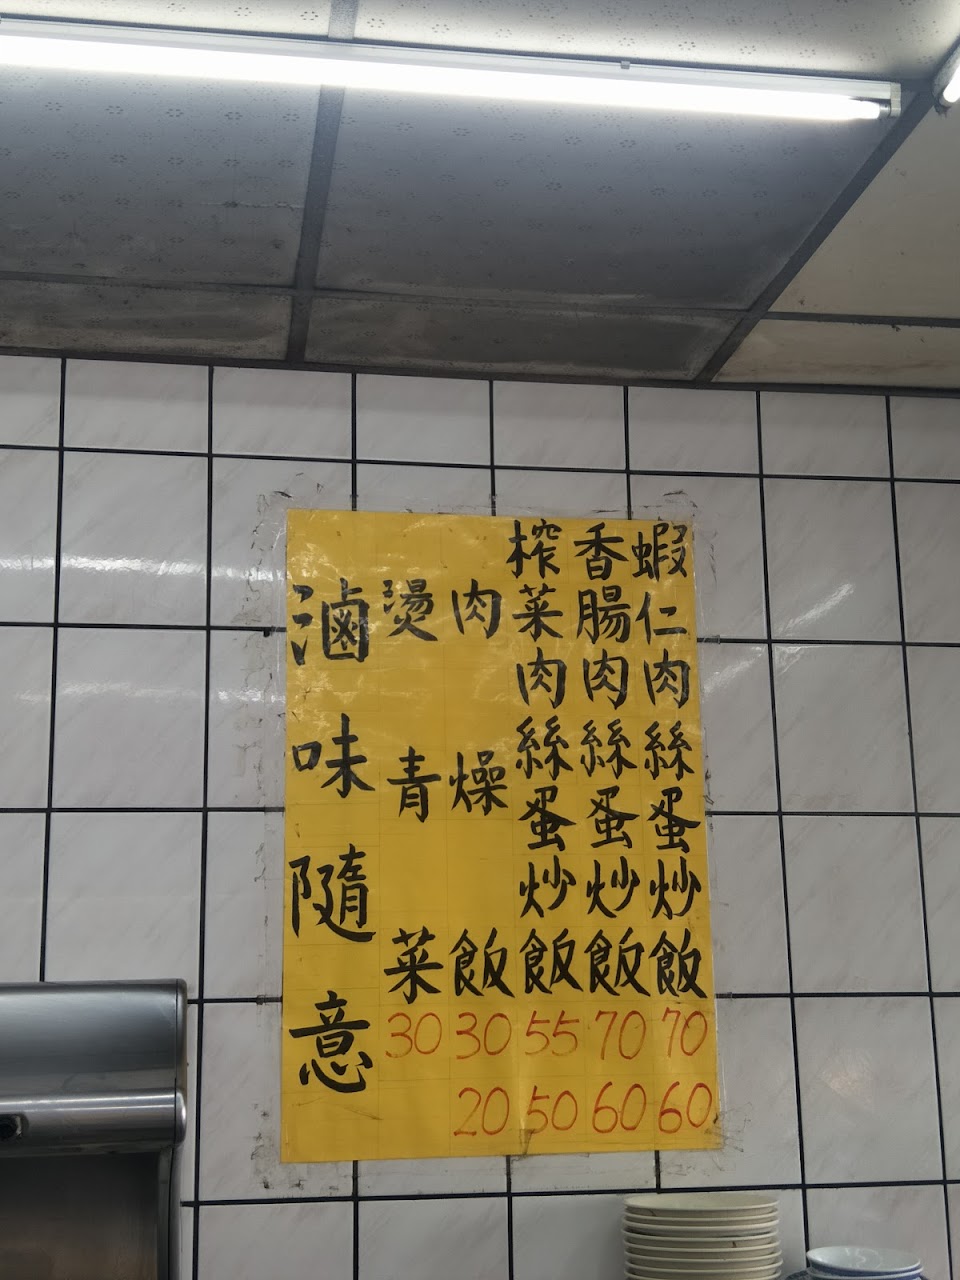 蝦仁肉絲蛋炒飯 70 60
香腸肉絲蛋炒飯 70 60
榨菜肉絲蛋炒飯 55 50
肉燥飯 30 20
燙青菜 30
滷味隨意